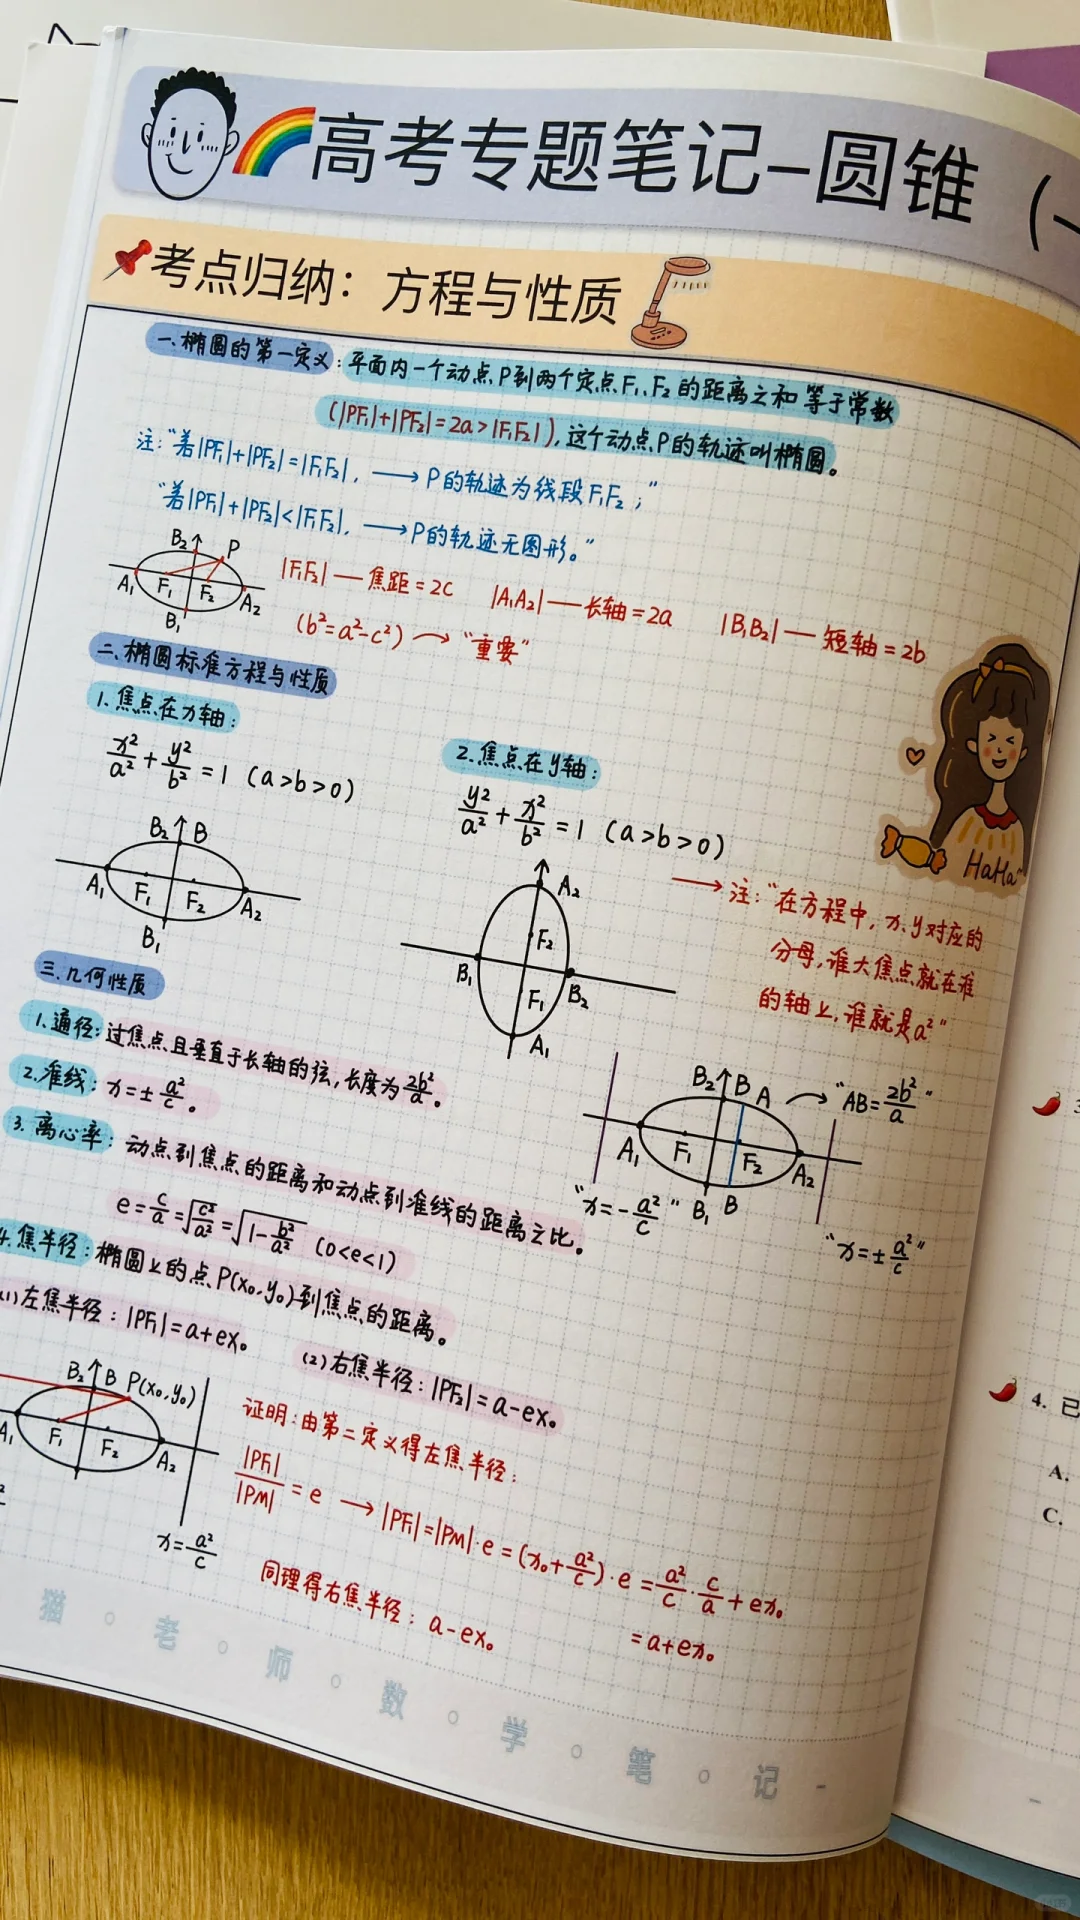 高考专题笔记-圆锥（一
考点归纳：方程与性质
一.椭圆的第一定义：平面内一个动点P到两个定点F₁、F₂的距离之和等于常数
(|PF₁|+|PF₂|=2a>|F₁F₂|)，这个动点P的轨迹叫椭圆。
注："若|PF₁|+|PF₂|=|F₁F₂|，⟶P的轨迹为线段F₁F₂；"
"若|PF₁|+|PF₂|<|F₁F₂|，⟶P的轨迹无图形。"
B₂ P
A₁ F₁ F₂ A₂
B₁
|F₁F₂|—焦距=2c |A₁A₂|—长轴=2a |B₁B₂|—短轴=2b
(b²=a²-c²)⟶"重要"
二.椭圆标准方程与性质
1.焦点在x轴：
x²/a²+y²/b²=1 (a>b>0)
B₂ B
A₁ F₁ F₂ A₂
B₁
2.焦点在y轴：
y²/a²+x²/b²=1 (a>b>0)
A₂
F₂
B₁ F₁ B₂
A₁
⟶注："在方程中，x、y对应的
分母，谁大焦点就在谁
的轴上，谁就是a²"
三.几何性质
1.通径：过焦点且垂直于长轴的弦，长度为2b²/a。
2.准线：x=±a²/c。
3.离心率：动点到焦点的距离和动点到准线的距离之比。
e=c/a=√(c²/a²)=√(1-b²/a²) (0<e<1)
B₂ B A ⟶ "AB=2b²/a"
A₁ F₁ F₂ A₂
"x=-a²/c" B₁ B
"x=±a²/c"
4.焦半径：椭圆上的点P(x₀,y₀)到焦点的距离。
(1)左焦半径：|PF₁|=a+ex。
(2)右焦半径：|PF₂|=a-ex。
B₂ B P(x₀,y₀)
A₁ F₁ F₂ A₂
x=a²/c
证明：由第二定义得左焦半径：
|PF₁|/|PM|=e ⟶|PF₁|=|PM|·e=(x₀+a²/c)·e=a²/c·c/a+ex₀
=a+ex₀
同理得右焦半径：a-ex₀
HaHa~
猫。老。师。数。学。笔。记-
4. 已
A.
C.